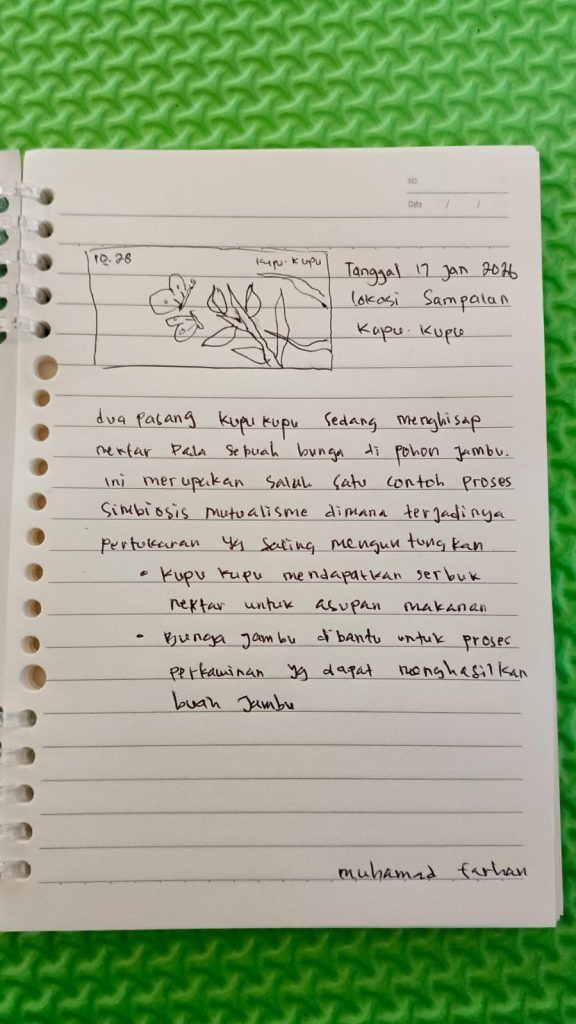 NO.
Date / /
10.28
Kupu-Kupu
Tanggal 17 Jan 2026
Lokasi Sampalan
Kupu-Kupu
dua pasang kupu kupu sedang menghisap
nektar pada sebuah bunga di pohon jambu.
ini merupakan salah satu contoh proses
Simbiosis mutualisme dimana terjadinya
pertukaran yg saling menguntungkan
• Kupu kupu mendapatkan serbuk
nektar untuk asupan makanan
• Bunga jambu dibantu untuk proses
perkawinan yg dapat menghasilkan
buah jambu
muhamad farhan